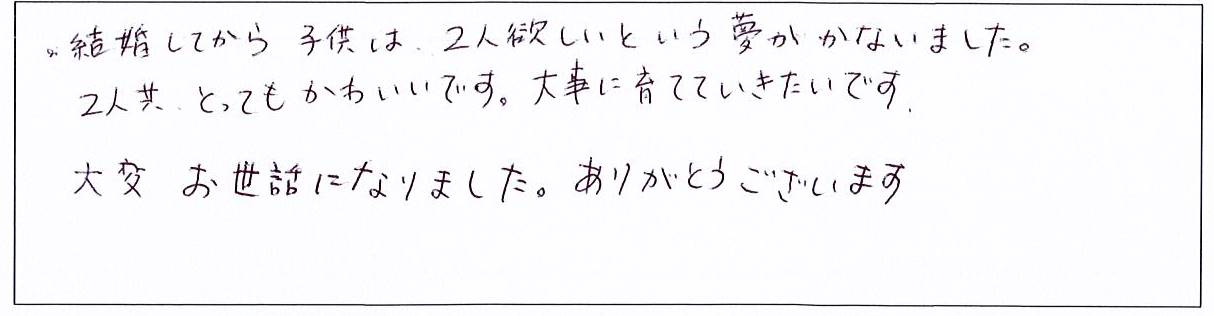 〃結婚してから 子供は、2人欲しいという夢が かないました。
2人共、とっても かわいいです。大事に育てていきたいです.
大変 お世話になりました。ありがとうございます